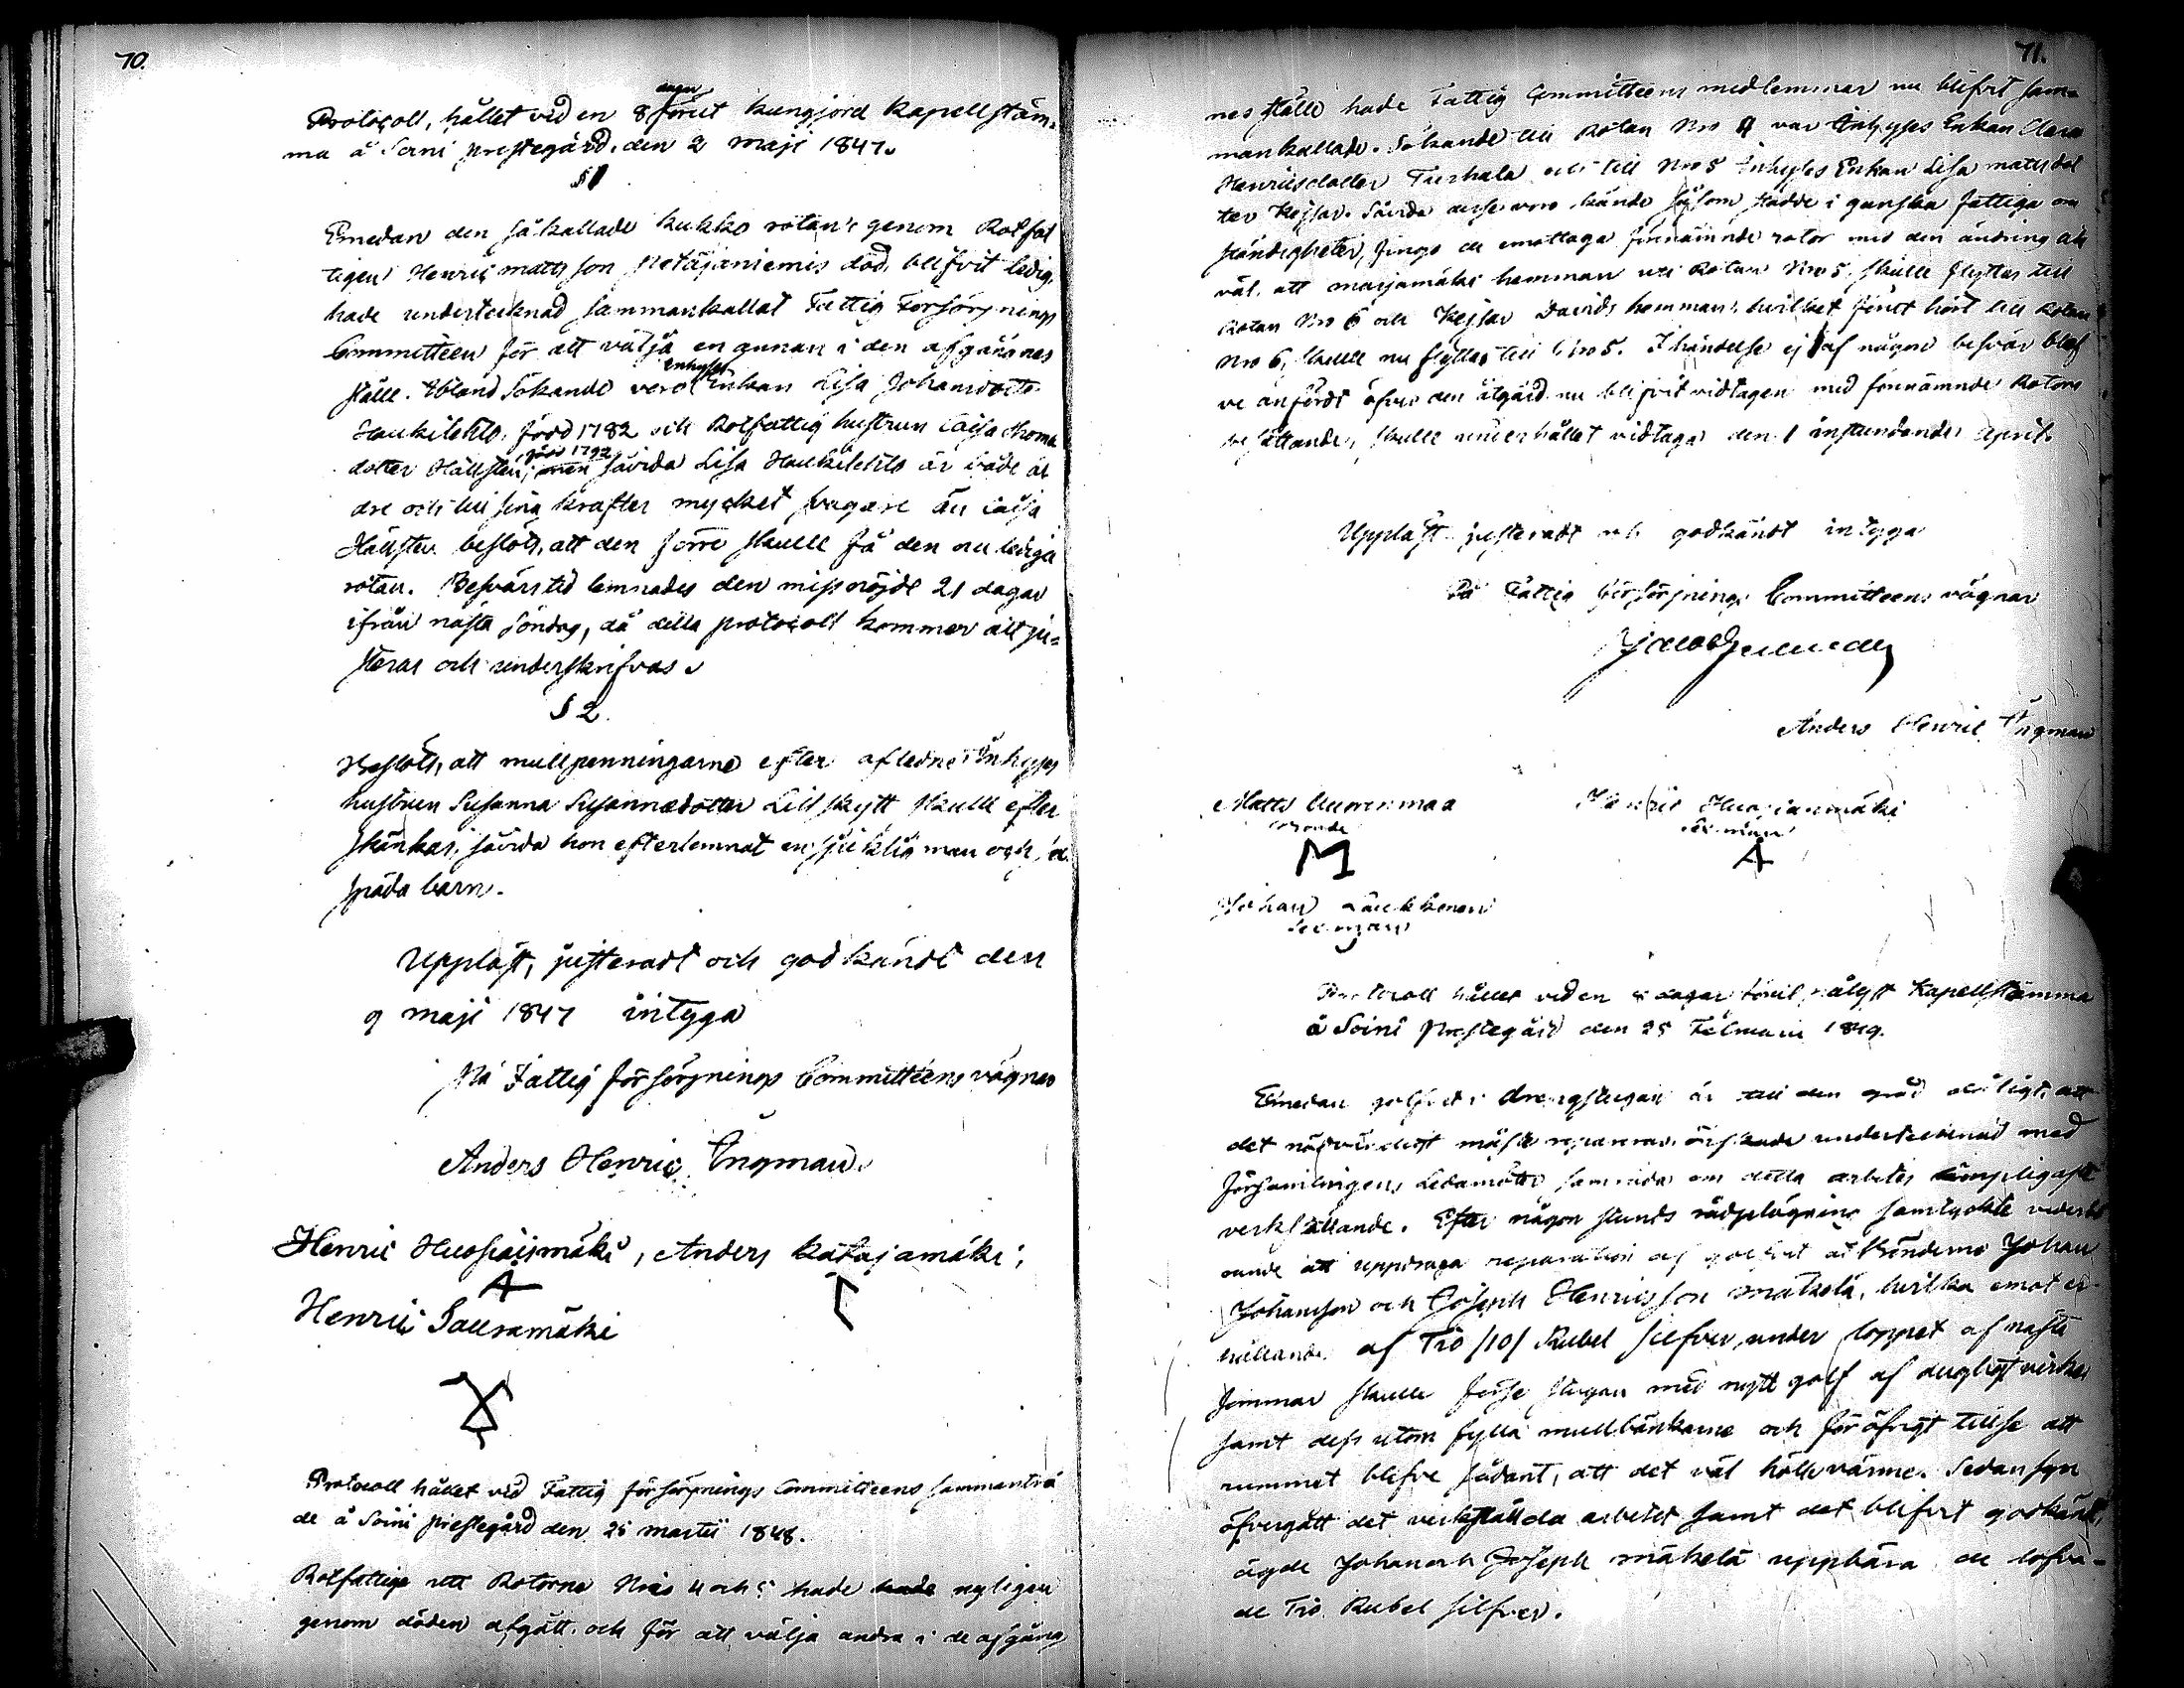 70.
Protocoll, hållet vid en 8 dagar förut kungjord kapellstäm-
ma å Soini prestegård, den 2 maji 1847.
§ 1
Emedan den så kallade kukko rotan genom Rotfat
tigen Henric mattsson Petäjäniemis död, blifvit ledig,
hade undertecknad sammankallat Fattig Försörjnings
Committeen för att välja en annan i den afgångnes
ställe. Ibland Sökande voro Enhyses Enkan Lisa Johansdotter
Haukilehto, född 1782 och Rotfattig hustrun Caisa Thoma
dotter Hällsten, född 1792, men såvida Lisa Haukilehto är både äl
dre och till sina krafter mycket svagare än Caisa
Hällsten beslöts, att den förre skulle få den nu lediga
rotan. Besvärstid lemnades den missnöjde 21 dagar
ifrån nästa söndag, då detta protocoll kommer att ju-
steras och underskrifvas.
§ 2.
Beslöts, att mullpenningarne efter aflidne Inhyses
hustrun Susanna Susannædotter Lillskytt skulle efter
skänkas, såvida hon efterlemnat en sjuklig man och
späda barn.
Uppläst, justeradt och godkändt den
9 maji 1847 intyga
På Fattig försörjnings Committéens vägnar
Anders Henric Ingman.
Henric Huosianmäki, Anders Katajamäki,
A
Henric Sauramäki
Protocoll hållet vid Fattig försörjnings Committeens sammanträ
de å Soini prestegård den 25 martii 1848.
Rotfattige uti Rotorne Nris 4 och 5 hade hade nyligen
genom döden afgått, och för att välja andra i de afgång
71.
nes ställe hade Fattig Committeens medlemmar nu blifvit sam-
mankallade. Sökande till Rotan Nro 4 var Inhyses Enkan Clara
Henricsdotter Turhala och till Nro 5 Inhyses Enkan Lisa mattsdot
ter Kejsar. Såvida desse voro kände såsom stadde i ganska fattiga om
ständigheter, fingo de emottaga förenämnde rotor med den ändring
väl, att marjamäki hemman uti Rotan Nro 5, skulle flyttas till
Rotan Nro 6 och Kejsar Davids hemman, hvilket förut hört till Rotan
Nro 6, skulle nu flyttas till Nro 5. I händelse ej af någon besvär blef
ve anfördt öfver den åtgärd nu blifvit vidtagen med förenämnde Rotors
besättande, skulle underhållet vidtaga den 1 instundande April.
Uppläst justeradt och godkändt intyga
På Fattig försörjnings Committeens vägnar
Anders Henric Ingman
Matts Uurenmaa
bonde
M
Henric Huosianmäki
sexman
A
Johan
sexman
Protocoll hållet vid en 8 dagar förut pålyst Kapellstämma
å Soini Prestegård den 25 Februarii 1849.
Emedan golfvet i drengstugan är till den grad dåligt, att
det nödvändigt måste repareras, önskade undertecknad med
församlingens Ledamöter samråda om detta arbetes lämpligaste
verkställande. Efter någon stunds rådplägning samtyckte vederbö
rande att uppdraga reparation af golfvet åt Bönderne Johan
Johansson och Joseph Henricsson mäkelä, hvilka emot er-
hållande af Tio /10/ Rubel silfver, under loppet af nästa
sommar skulle förse stugan med nytt golf af dugligt virke
samt dess utom fylla mullbänkarne och för öfrigt tillse att
rummet blifve sådant, att det väl höll värme. Sedan syn
öfvergått det verkställda arbetet samt det blifvit godkändt,
ägde Johan och Joseph mäkelä uppbära de lofva-
de Tio Rubel silfver.